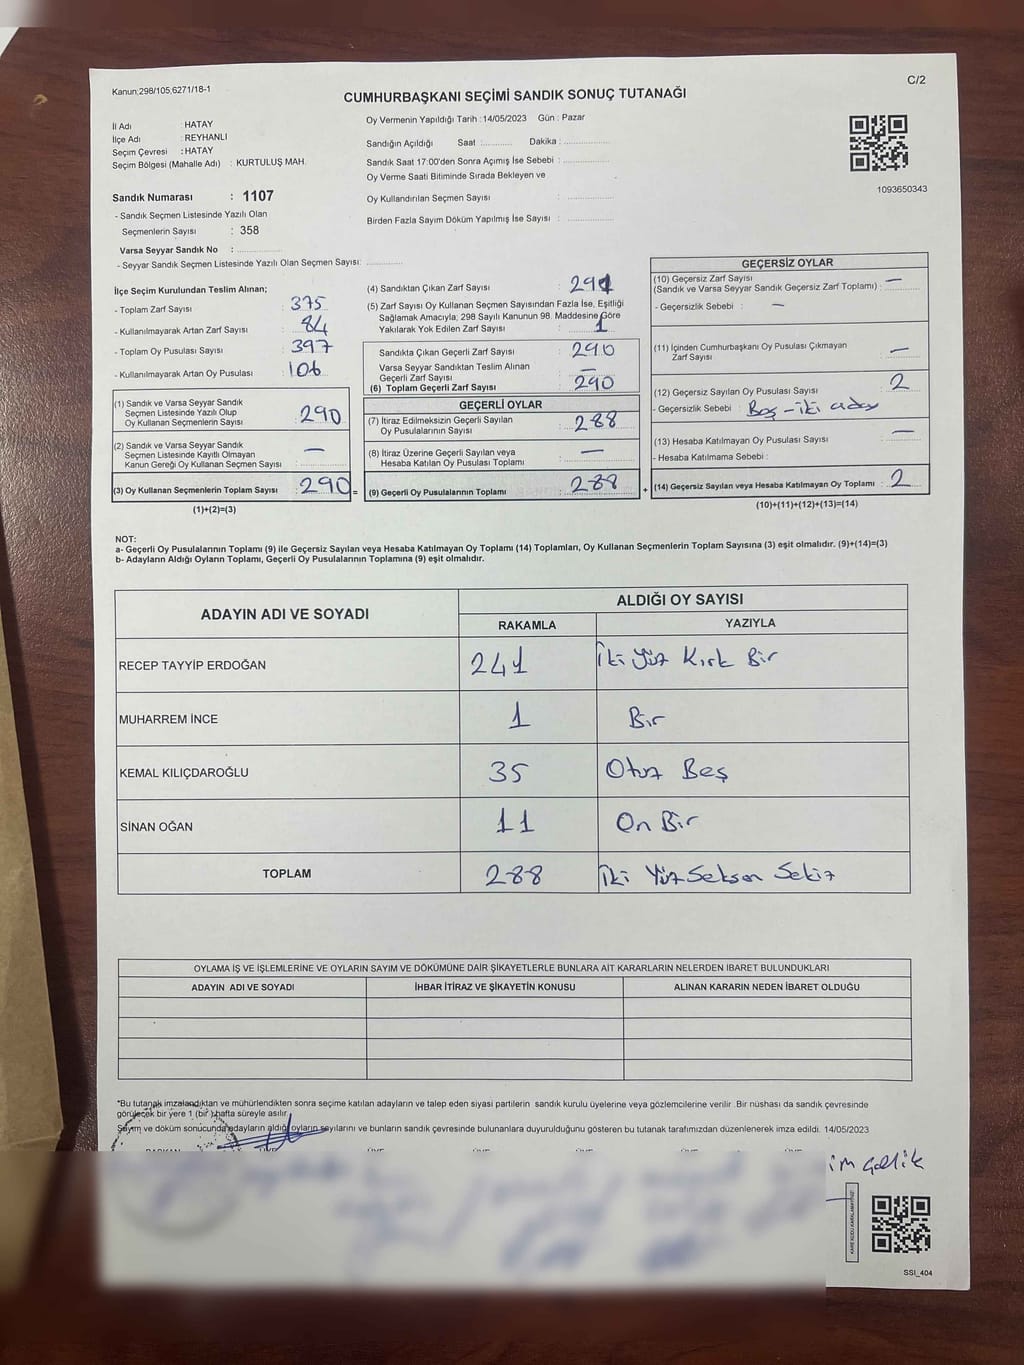 Kanun;298/105,6271/18-1
C/2
CUMHURBAŞKANI SEÇİMİ SANDIK SONUÇ TUTANAĞI
İl Adı : HATAY
İlçe Adı : REYHANLI
Seçim Çevresi : HATAY
Seçim Bölgesi (Mahalle Adı) : KURTULUŞ MAH.
Sandık Numarası : 1107
- Sandık Seçmen Listesinde Yazılı Olan
Seçmenlerin Sayısı : 358
Varsa Seyyar Sandık No :
- Seyyar Sandık Seçmen Listesinde Yazılı Olan Seçmen Sayısı:
Oy Vermenin Yapıldığı Tarih :14/05/2023 Gün : Pazar
Sandığın Açıldığı Saat : Dakika :
Sandık Saat 17:00'den Sonra Açımış İse Sebebi :
Oy Verme Saati Bitiminde Sırada Bekleyen ve
Oy Kullandırılan Seçmen Sayısı :
Birden Fazla Sayım Döküm Yapılmış İse Sayısı :
1093650343
İlçe Seçim Kurulundan Teslim Alınan;
- Toplam Zarf Sayısı : 375
- Kullanılmayarak Artan Zarf Sayısı : 84
- Toplam Oy Pusulası Sayısı : 397
- Kullanılmayarak Artan Oy Pusulası : 106
(1) Sandık ve Varsa Seyyar Sandık
Seçmen Listesinde Yazılı Olup
Oy Kullanan Seçmenlerin Sayısı : 290
(2) Sandık ve Varsa Seyyar Sandık
Seçmen Listesinde Kayıtlı Olmayan
Kanun Gereği Oy Kullanan Seçmen Sayısı : —
(3) Oy Kullanan Seçmenlerin Toplam Sayısı : 290 =
(1)+(2)=(3)
(4) Sandıktan Çıkan Zarf Sayısı : 291
(5) Zarf Sayısı Oy Kullanan Seçmen Sayısından Fazla İse, Eşitliği
Sağlamak Amacıyla; 298 Sayılı Kanunun 98. Maddesine Göre
Yakılarak Yok Edilen Zarf Sayısı : 1
Sandıkta Çıkan Geçerli Zarf Sayısı : 290
Varsa Seyyar Sandıktan Teslim Alınan
Geçerli Zarf Sayısı : —
(6) Toplam Geçerli Zarf Sayısı : 290
GEÇERLİ OYLAR
(7) İtiraz Edilmeksizin Geçerli Sayılan
Oy Pusulalarının Sayısı : 288
(8) İtiraz Üzerine Geçerli Sayılan veya
Hesaba Katılan Oy Pusulası Toplamı : —
(9) Geçerli Oy Pusulalarının Toplamı : 288 +
GEÇERSİZ OYLAR
(10) Geçersiz Zarf Sayısı
(Sandık ve Varsa Seyyar Sandık Geçersiz Zarf Toplamı) : —
- Geçersizlik Sebebi : —
(11) İçinden Cumhurbaşkanı Oy Pusulası Çıkmayan
Zarf Sayısı : —
(12) Geçersiz Sayılan Oy Pusulası Sayısı : 2
- Geçersizlik Sebebi : Boş - iki aday
(13) Hesaba Katılmayan Oy Pusulası Sayısı : —
- Hesaba Katılmama Sebebi :
(14) Geçersiz Sayılan veya Hesaba Katılmayan Oy Toplamı : 2
(10)+(11)+(12)+(13)=(14)
NOT:
a- Geçerli Oy Pusulalarının Toplamı (9) ile Geçersiz Sayılan veya Hesaba Katılmayan Oy Toplamı (14) Toplamları, Oy Kullanan Seçmenlerin Toplam Sayısına (3) eşit olmalıdır. (9)+(14)=(3)
b- Adayların Aldığı Oyların Toplamı, Geçerli Oy Pusulalarının Toplamına (9) eşit olmalıdır.
ADAYIN ADI VE SOYADI ALDIĞI OY SAYISI
RAKAMLA YAZIYLA
RECEP TAYYİP ERDOĞAN 241 İki Yüz Kırk Bir
MUHARREM İNCE 1 Bir
KEMAL KILIÇDAROĞLU 35 Otuz Beş
SİNAN OĞAN 11 On Bir
TOPLAM 288 İki Yüz Seksen Sekiz
OYLAMA İŞ VE İŞLEMLERİNE VE OYLARIN SAYIM VE DÖKÜMÜNE DAİR ŞİKAYETLERLE BUNLARA AİT KARARLARIN NELERDEN İBARET BULUNDUKLARI
ADAYIN ADI VE SOYADI İHBAR İTİRAZ VE ŞİKAYETİN KONUSU ALINAN KARARIN NEDEN İBARET OLDUĞU
*Bu tutanak imzalandıktan ve mühürlendikten sonra seçime katılan adayların ve talep eden siyasi partilerin sandık kurulu üyelerine veya gözlemcilerine verilir .Bir nüshası da sandık çevresinde
görülecek bir yere 1 (bir) hafta süreyle asılır.
Sayım ve döküm sonucunda adayların aldığı oyların sayılarını ve bunların sandık çevresinde bulunanlara duyurulduğunu gösteren bu tutanak tarafımızdan düzenlenerek imza edildi. 14/05/2023
KARE KODU KARALAMAYINIZ!
SSI_404